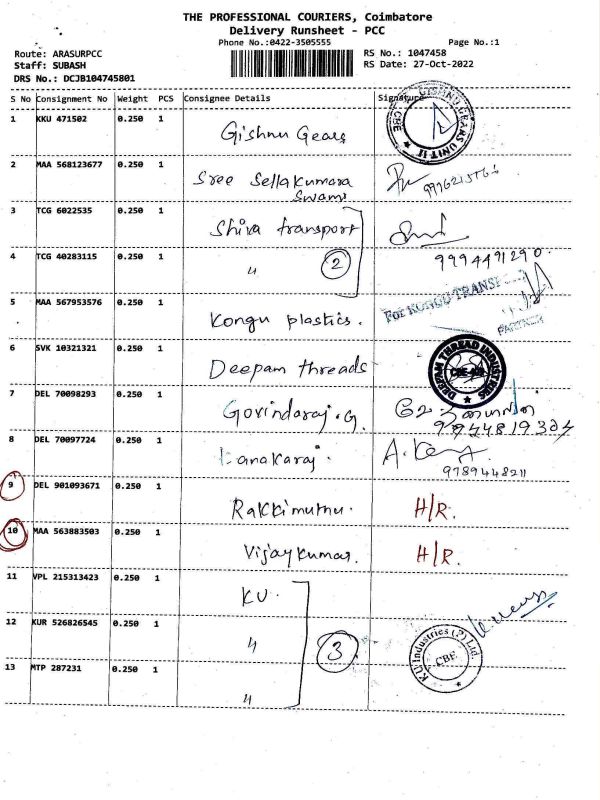 THE PROFESSIONAL COURIERS, Coimbatore
Delivery Runsheet - PCC
Phone No.:0422-3505555 Page No.:1
Route: ARASURPCC RS No.: 1047458
Staff: SUBASH RS Date: 27-Oct-2022
DRS No.: DCJB104745801
S No Consignment No Weight PCS Consignee Details Signature
1 KKU 471502 0.250 1 Gishnu Gears
GISHNU GEARS UNIT-II CBE
2 MAA 568123677 0.250 1 Sree Sellakumara
Swami
3 TCG 6022535 0.250 1 Shiva transport
4 TCG 40283115 0.250 1 〃 2 9994491290.
5 MAA 567953576 0.250 1 Kongu plastics.
For KONGU TRANSP
PARTNER
6 SVK 10321321 0.250 1 Deepam threads
DEEPAM THREAD INDUSTRIES
7 DEL 70098293 0.250 1 Govindaraj.G.
8 DEL 70097724 0.250 1 Kanakaraj. 9789448211
9 DEL 901093671 0.250 1 Rakkimuthu. H/R.
10 MAA 563883503 0.250 1 Vijaykumar. H/R.
11 VPL 215313423 0.250 1 KU.
12 KUR 526826545 0.250 1 〃 3
KU Industries (P) Ltd CBE
13 MTP 287231 0.250 1 〃